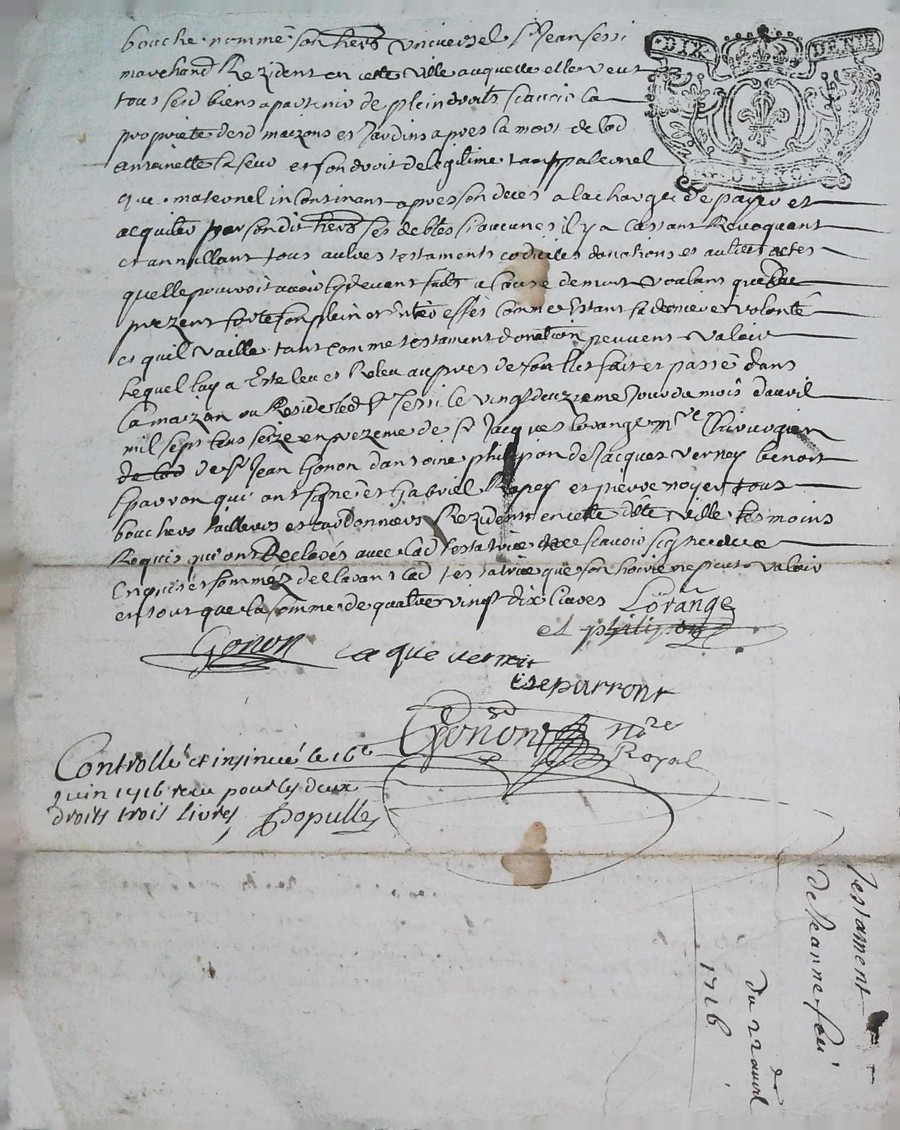 DIX DENIE
bouche nommé son herr universel Sr Jean fessi
marchand Rezident en cette ville auquelle elle veut
tous sesd biens apartenir de plein droits scavoir la
proprieté desd maizons et Jardins apres la mort de lad
antoinette sa seur et son droit de legitime tant palernel
que maternel incontinant apres son deces a la charge de payer et
acquiter par son dit herr ses debtes si aucunes il y a Cassant Revoquant
et annullant tous autres testaments codiciles donations et autres actes
quelle pouvoit avoir cy devant faits a Cause de mort voulant que le
prezent sorte son plein et entier effet comme Estant sa derniere volonté
et quil vaille tant comme testament donation peuvent valoir
lequel luy a Esté leu et Releu aupres de son lict fait et passé dans
la maizon ou Reside led Sr fessi le vingt deuzieme Jour du mois davril
mil sept cens seize en prezence de Sr Jacques lorange mre Chirurgien
de lad de Sr Jean Gonon dantoine philipon de Jacques verney benoit
sparron qui ont signé et Gabriel et pierre noyer tous
bouchers tailleurs et cordonniers Rezidents en cette dite ville tesmoins
Requis qui ont Declarés avec lad testatrice ne scavoir signer de ce
Enquis et sommés declarant lad testatrice que son hoirie ne peut valoir
en tout que la somme de quatre vingt dix livres Lorange
Gonon Ja que verneit et philipon
separront
Gonon nre
Royal
Controllé et insinué le 16e
Juin 1716 receu pour les deux
droits trois livres popull
Testament
de Jeanne fesi
du 22 avril
1716